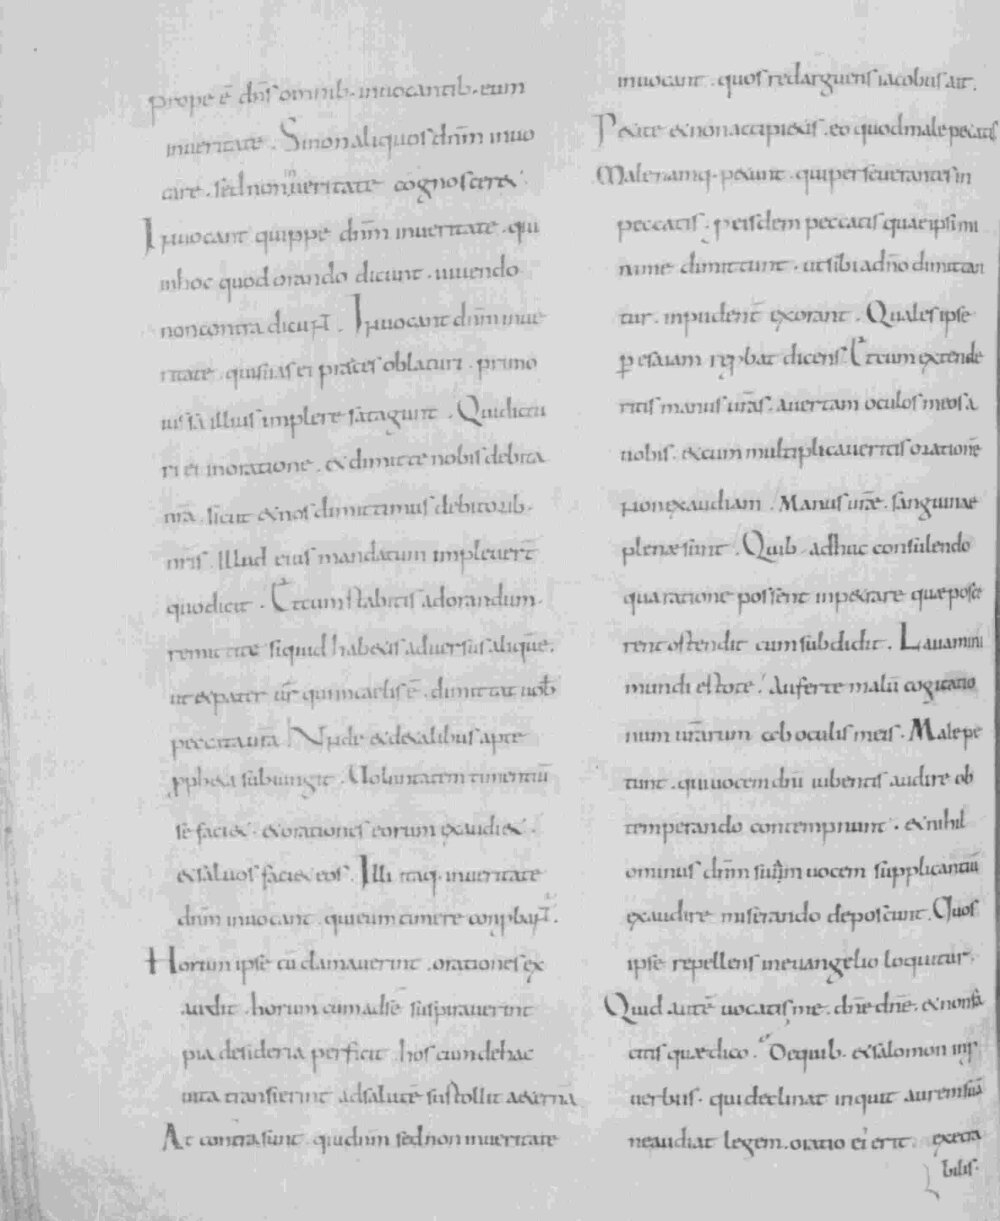 prope ē dn̄s omnib· inuocantib· eum
inueritate · Sinon aliquos dn̄m inuo
care · sed non inueritate cognosceret·
Inuocant quippe dn̄m inueritate · qui
inhoc quod orando dicunt · uiuendo
non contra dicunt · Inuocant dn̄m inue
ritate · qui suas ei preces oblaturi · primo
iussa illius implere satagunt · Qui dictu
ri ei inoratione · et dimitte nobis debita
nr̄a · sicut et nos dimittimus debitorib·
nr̄is · Illud eius mandatum impleuerīt
quod icit · Et cum stabitis ad orandum·
remittite siquid habetis aduersus aliquē·
ut et pater ur̄ qui incaelis ē · dimittat uob̄
peccata ur̄a · Unde et dexalibus apte
ppheta subiungit · Uoluntatem timentiū
se faciet · et orationes eorum exaudiet·
et saluos faciet eos · Illi itaq· inueritate
dn̄m inuocant · qui eum timere conpbant̄·
Horum ipse cū clamauerint · orationes ex
audit · horum cum adse suspirauerint
pia desideria perficit · hos cum dehac
uita transierint adsalutē sustollit aeternā
At contra sunt · qui dn̄m sed non inueritate
inuocant · quos redarguens iacobus ait·
Petite et non accipietis · eo quod male petatis
Male namq· petunt · qui perseuerantes in
peccatis · p eisdem peccatis quae ipsi mi
nime dimittunt · ut sibi adn̄o dimittan
tur · inpudent̄ exorant · Quales ipse
p̱ esaiam repbat dicens· Et cum extende
ritis manus ur̄as · auertam oculos meos a
uobis · et cum multiplicaueritis orationē
non exaudiam · Manus ur̄ae · sanguinae
plenae sunt · Quib· adhuc consulendo
qua ratione possent inpetrare quae posce
rent ostendit cum subdidit · Lauamini
mundi estote · Auferte malū cogitatio
num ur̄arum ab oculis meis · Male pe
tunt · qui uocem dn̄i iubentis audire ob
temperando contempnunt · et nihil
ominus dn̄m suam uocem supplicantiū
exaudire miserando deposcunt · Quos
ipse repellens ineuangelio loquitur·
Quid autē uocatis me · dn̄e dn̄e · et non fa
citis quae dico · De quib· et salomon inp
uerbiis · qui declinat inquit aurem suā
ne audiat legem · oratio ei erit execra
bilis·